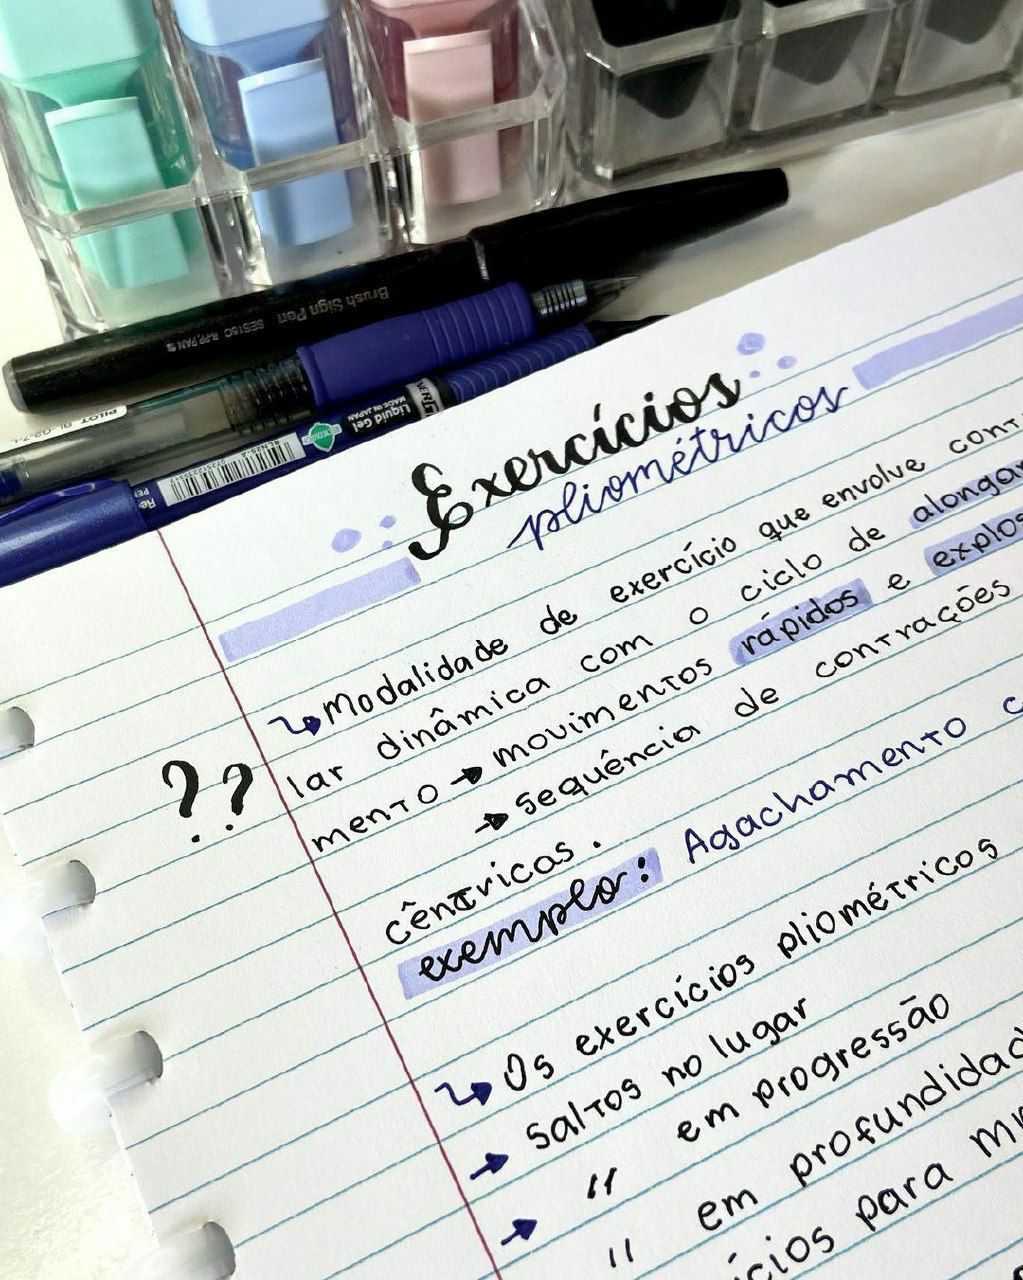 Brush Sign Pen
SES15C
PILOT
Liquid Gel
MADE IN JAPAN
BLN25-A
Exercícios
pliométricos
Modalidade de exercício que envolve
lar dinâmica com o ciclo de alonga
mento → movimentos rápidos e explos
→ sequência de contrações
cêntricas.
??
exemplo: Agachamento c
Os exercícios pliométricos
→ Saltos no lugar
→ " em progressão
" em profundidad
cios para